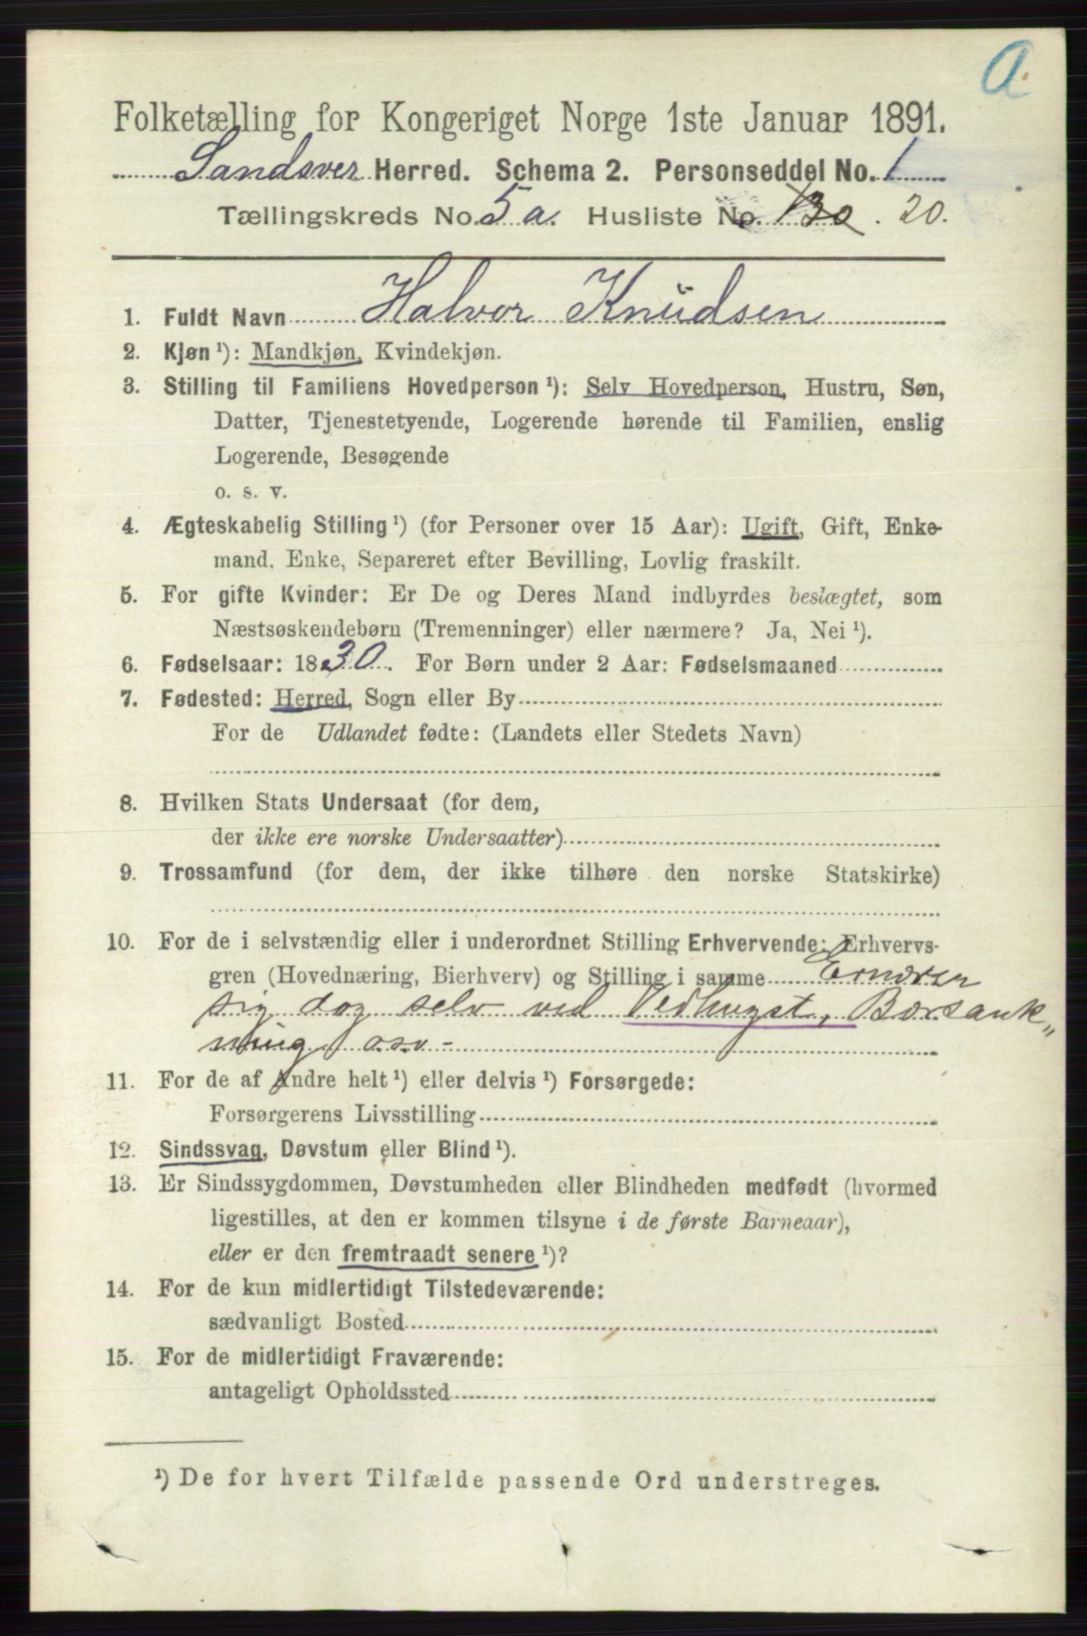 a.
Folketælling for Kongeriget Norge 1ste Januar 1891.
Sandsver Herred. Schema 2. Personseddel No. 1
Tællingskreds No. 5 a. Husliste No. 20.
1. Fuldt Navn Halvor Knudsen
2. Kjøn ¹): Mandkjøn, Kvindekjøn.
3. Stilling til Familiens Hovedperson ¹): Selv Hovedperson, Hustru, Søn,
Datter, Tjenestetyende, Logerende hørende til Familien, enslig
Logerende, Besøgende
o. s. v.
4. Ægteskabelig Stilling ¹) (for Personer over 15 Aar): Ugift, Gift, Enke-
mand, Enke, Separeret efter Bevilling, Lovlig fraskilt.
5. For gifte Kvinder: Er De og Deres Mand indbyrdes beslægtet, som
Næstsøskendebørn (Tremenninger) eller nærmere? Ja, Nei ¹).
6. Fødselsaar: 1830. For Børn under 2 Aar: Fødselsmaaned
7. Fødested: Herred, Sogn eller By
For de Udlandet fødte: (Landets eller Stedets Navn)
8. Hvilken Stats Undersaat (for dem,
der ikke ere norske Undersaatter)
9. Trossamfund (for dem, der ikke tilhøre den norske Statskirke)
10. For de i selvstændig eller i underordnet Stilling Erhvervende: Erhvervs-
gren (Hovednæring, Bierhverv) og Stilling i samme Ernærer
sig dog selv ved Vedhugst, Bærsank„
ning osv -
11. For de af Andre helt ¹) eller delvis ¹) Forsørgede:
Forsørgerens Livsstilling
12. Sindssvag, Døvstum eller Blind ¹).
13. Er Sindssygdommen, Døvstumheden eller Blindheden medfødt (hvormed
ligestilles, at den er kommen tilsyne i de første Barneaar),
eller er den fremtraadt senere ¹)?
14. For de kun midlertidigt Tilstedeværende:
sædvanligt Bosted
15. For de midlertidigt Fraværende:
antageligt Opholdssted
¹) De for hvert Tilfælde passende Ord understreges.